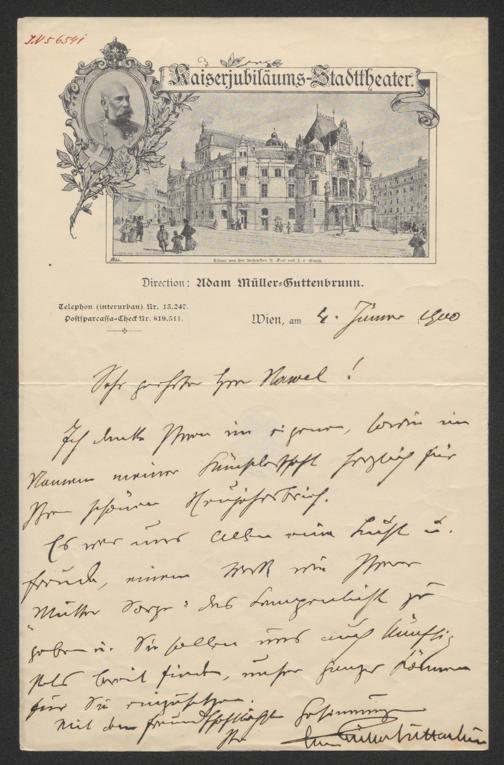 J.N 56591
Kaiserjubiläums-Stadttheater.
Direction: Adam Müller-Guttenbrunn.
Telephon (interurban) Nr. 13.247.
Postsparcassa-Check Nr. 819.511.
Wien, am 4. Jänner 1900
Sehr geehrter Herr Hawel!
Ich danke Ihnen im eigenen, sowie im
Namen meiner Künstlerschaft herzlich für
Ihre schönen
Es war uns Allen eine Lust u.
Freude, einem Werk wie Ihrer
"Mutter Sorge" das Lampenlicht zu
geben u. Sie sollen uns auch künftig
stets bereit finden, unser ganzes Können
für Sie einzusetzen.
Mit den freundschaftlichsten Gesinnungen
Ihr
Müller-Guttenbrunn